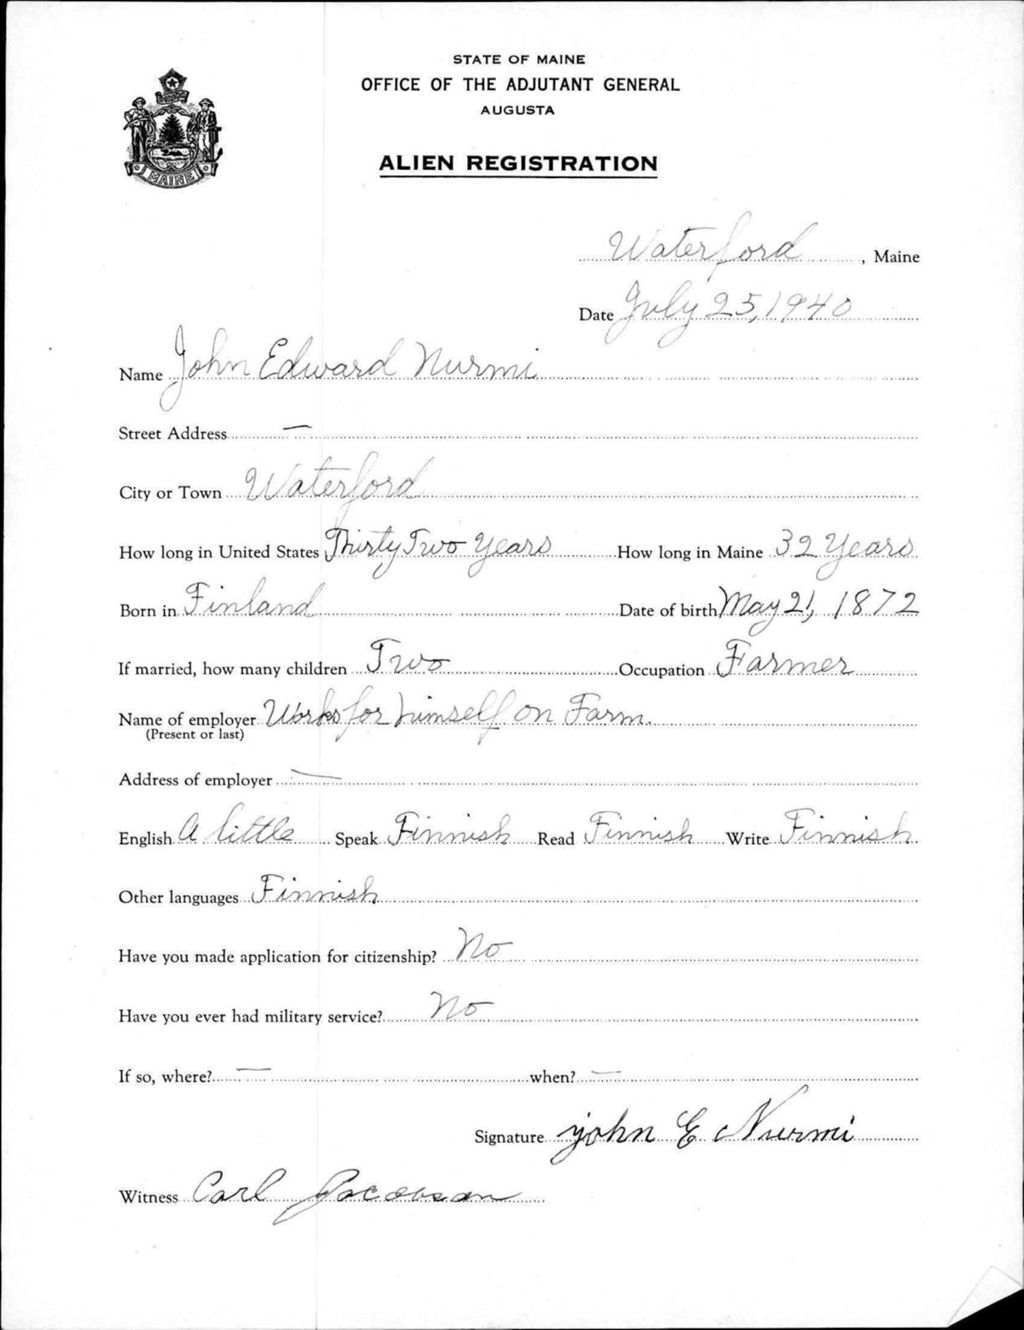 STATE OF MAINE
OFFICE OF THE ADJUTANT GENERAL
AUGUSTA
ALIEN REGISTRATION
MAINE
Waterford, Maine
Date July 25, 1940
Name John Edward Nurmi
Street Address —
City or Town Waterford
How long in United States Thirty Two Years How long in Maine 32 Years
Born in Finland Date of birth May 21, 1872
If married, how many children Two Occupation Farmer
Name of employer Works for himself on Farm.
(Present or last)
Address of employer —
English A little Speak Finnish Read Finnish Write Finnish
Other languages Finnish
Have you made application for citizenship? No
Have you ever had military service? No
If so, where? — when? —
Signature john E Nurmi
Witness Carl Jacobson